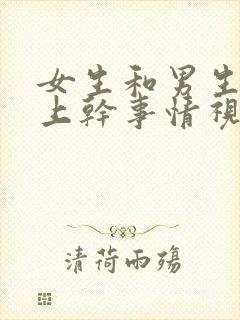 女生和男生
上幹事情視
清荷雨殤